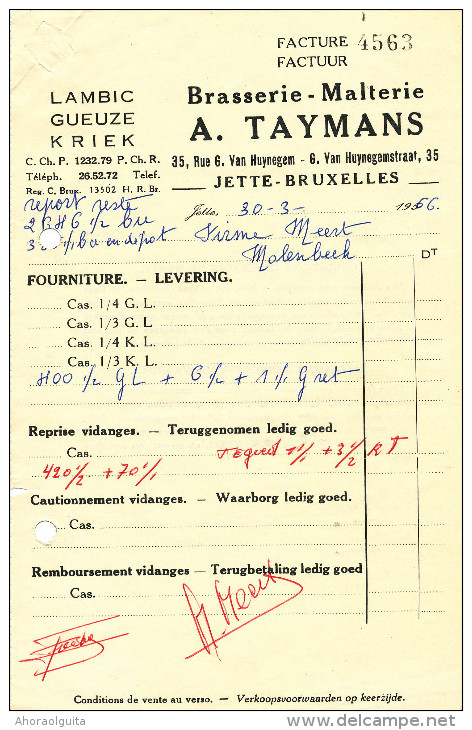 FACTURE 4563
FACTUUR
LAMBIC
GUEUZE
KRIEK
Brasserie - Malterie
A. TAYMANS
C. Ch. P. 1232.79 P. Ch. R.
Téléph. 26.52.72 Telef.
Reg. C. Brux. 13502 H. R. Br.
35, Rue G. Van Huynegem - G. Van Huynegemstraat, 35
JETTE-BRUXELLES
report reste
Jette, 30-3- 1966.
en dépot
Firme Meert
Molenbeek
DT
FOURNITURE. — LEVERING.
Cas. 1/4 G. L.
Cas. 1/3 G. L
Cas. 1/4 K. L.
Cas. 1/3 K. L.
400 1/2 GL + 6 1/2 + 1 1/1 G ret
Reprise vidanges. — Teruggenomen ledig goed.
Cas.
1/1 + 3 1/2 RT
420 1/2 + 70 1/1
Cautionnement vidanges. — Waarborg ledig goed.
Cas.
Remboursement vidanges — Terugbetaling ledig goed
Cas.
Meert
Conditions de vente au verso. — Verkoopsvoorwaarden op keerzijde.
Ahoraolguita
www.delcampe.net